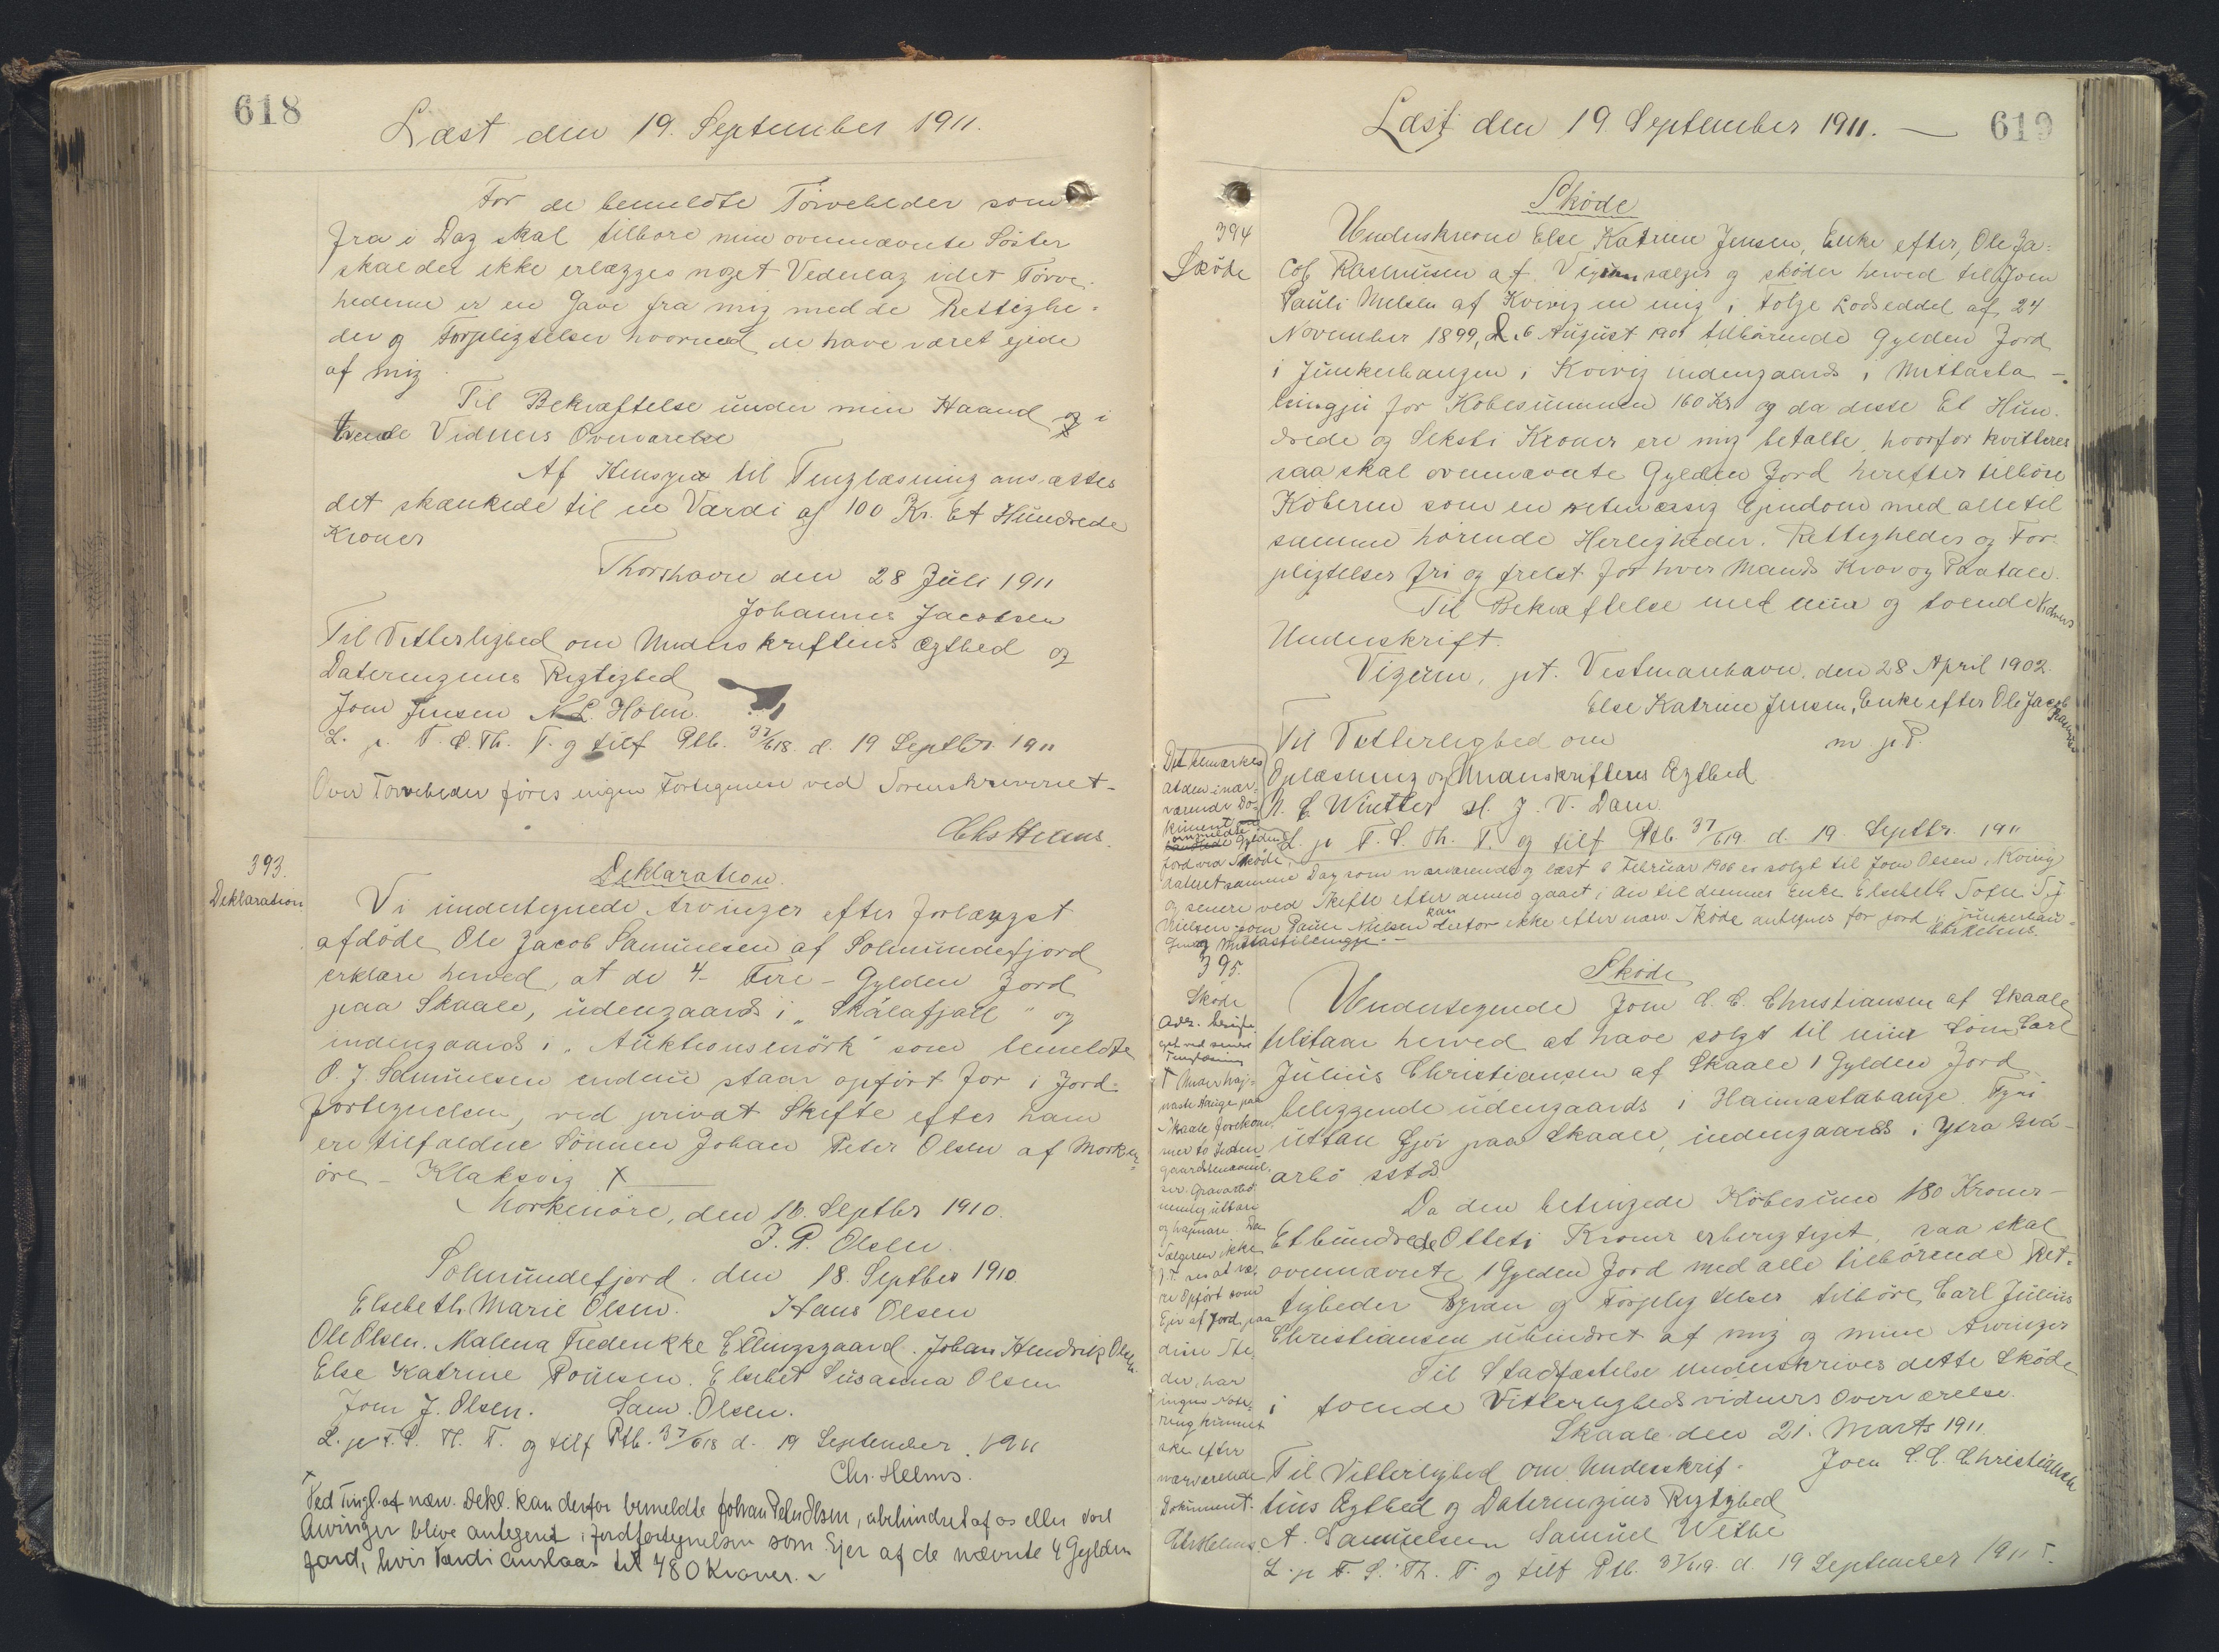 618
Læst den 19. September 1911.
For de bemeldte Törveheder som
fra i Dag skal tilhøre min ovennævnte Söster
skal der ikke erlægges noget Vederlag idet Törve
hederne er en Gave fra mig med de Rettighe-
der og Forpligtelser hvormed de have været ejede
af mig
Til Bekræftelse under min Haand og i
tvende Vidners Overværelse
Af Hensyn til Tinglæsning ansættes
det skænkede til en Værdi af 100 Kr. Et Hundrede
Kroner
Thorshavn den 28 Juli 1911
Johannes Jacobsen
Til Vitterlighed om Underskriftens Ægthed og
Dateringens Rigtighed
Joen Jensen N. L. Holm.
L. p. F. S. Th. T. og tilf Ptb. 37/618. d. 19 Septbr. 1911
Over Törveheder föres ingen Fortegnelse ved Sorenskriveriet-
Chs Helms.
393.
Deklaration
Deklaration.
Vi undertegnede Arvinger efter forlængst
afdöde Ole Jacob Samuelsen af Solmundefjord
erklære herved, at de 4- Fire- Gylden Jord
paa Skaale, udengaards i "Skálafjall" og
indengaards i "Auktionsmörk" som bemeldte
O. J. Samuelsen endnu staar opfört for i Jord-
fortegnelsen, ved privat Skifte efter ham
ere tilfaldne Sönnen Johan Peter Olsen af Morken-
öre - Klaksvig x
Norkenöre, den 16. Septbr 1910.
J. P. Olsen
Solmundefjord. den 18. Septber 1910.
Elsebeth Marie Olsen. Hans Olsen
Ole Olsen. Malena Frederikke Ellingsgaard. Johan Hendrik Olsen.
Else Katrine Poulsen. Elsebet Susanna Olsen
Joen J. Olsen. Sam. Olsen.
L. p. F. S. Th. T. og tilf Ptb. 37/618 d. 19 September. 1911
Chr. Helms.
x
Ved Tingl. af nærv. Dekl. kan derfor bemeldte Johan Peter Olsen, ubehindret af os eller vore
Arvinger blive antegnet i Jordfortegnelsen som Ejer af de nævnte 4 Gylden
Jord, hvis Værdi anslaas til 480 Kroner.
Læst den 19 September 1911. —
619
394
Sköde
Sköde
Underskrevne Else Katrine Jensen, Enke efter, Ole Ja-
cob Rasmusen af Vigum sælger og sköder herved til Joen
Pauli Nielsen af Kvivig en mig i Fölge Lodseddel af 24
November 1899, d. 6 August 1901 tilhörende Gylden Jord
i Junkerhaugen i Kvivig indengaards i Mittasta-
leingju for Köbesummen 160 Kr og da disse Et Hun-
drede og Seksti Kroner ere mig betalte, hvorfor kvitteres
saa skal ovennævnte Gylden Jord herefter tilhöre
Köberen som en retmæssig Ejendom med alle til
samme hörende Herligheder. Rettigheder og For-
pligtelser fri og frelst for hver Mands Krav og Paatale.
Til Bekræftelse med min og tvende Vidners
Underskrift.
Vigum, pt. Vestmanhavn, den 28 April 1902.
Else Katrine Jensen, Enke efter Ole Jacob
Rasmusen
m p P.
Til Vitterlighed om
Oplæsning og Underskriftens Ægthed
N. E Winther H. J. V. Dam.
L. p F. S. Th. T. og tilf Ptb. 37/619. d. 19. Septbr. 1911
Det bemærkes
at den i nær-
værende Do-
kument
ommeldte Gylden
Jord ved Sköde,
dateret samme Dag som nærværende og læst 6 Februar 1906 er solgt til Joen Olsen, Kvivig
og senere ved Skifte efter denne gaaet i Arv til dennes Enke Elsebeth Sofie
Nielsen som Pauli Nielsen kan derfor ikke efter nærv. Sköde antegnes for Jord i Junkerhau-
gen Mittastileingju.— Chr Helms.
395.
Sköde
Sköde
Undertegnede Joen S. C. Christiansen af Skaale
tilstaar herved at have solgt til min Sön Carl
Julius Christiansen af Skaale 1 Gylden Jord
beliggende udengaards i Hamrastabauge. Fyri
uttan Gjov paa Skaale, indengaards i Ytra Grá-
arbö sstds
Da den betingede Köbesum 180 Kroner-
Ethundrede Otteti Kroner er berigtiget, saa skal
ovennævnte 1 Gylden Jord med alle tilhörende Ret-
tigheder Byrder og Forpligtelser tilhöre Carl Julius
Christiansen uhindret af mig og mine Arvinger
Til Stadfæstelse underskrives dette Sköde
i tvende Vitterlighedsvidners Overværelse.
Skaale den 21. Marts 1911.
Joen S. C. Christiansen
Til Vitterlighed om Underskrif-
tens Ægthed og Dateringens Rigtighed
A. Samuelsen Samuel Withe
L. p F. S. Th. T. og tilf Ptb. 37/619. d. 19 September 1911 T.
get ved senere
Tinglæsning
Skaale forekom-
mer to Inden-
nemlig uttan
Da
Sælgeren ikke
ses at væ-
re Opfört som
Ejer af Jord paa
disse Ste-
der, har
ingen Note-
ring kunnet
ske efter
nærværende
Dokument.
Chr Helms.